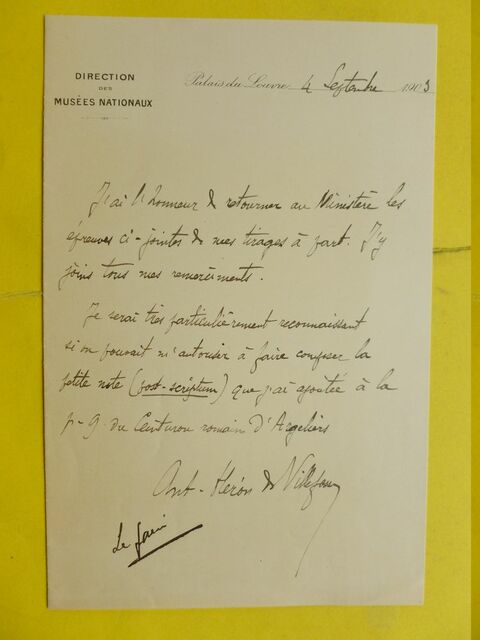 DIRECTION
DES
MUSÉES NATIONAUX
Palais du Louvre, 4 Septembre 1903
J'ai l'honneur de retourner au Ministère les
épreuves ci-jointes de mes tirages à part. J'y
joins tous mes remerciments.
Je serai très particulièrement reconnaissant
si on pouvait m'autoriser à faire composer la
petite note (post-scriptum) que j'ai ajoutée à la
p. 9 du Ceinturon romain d'Argeliers
Ant. Héron de Villefosse
Le faire